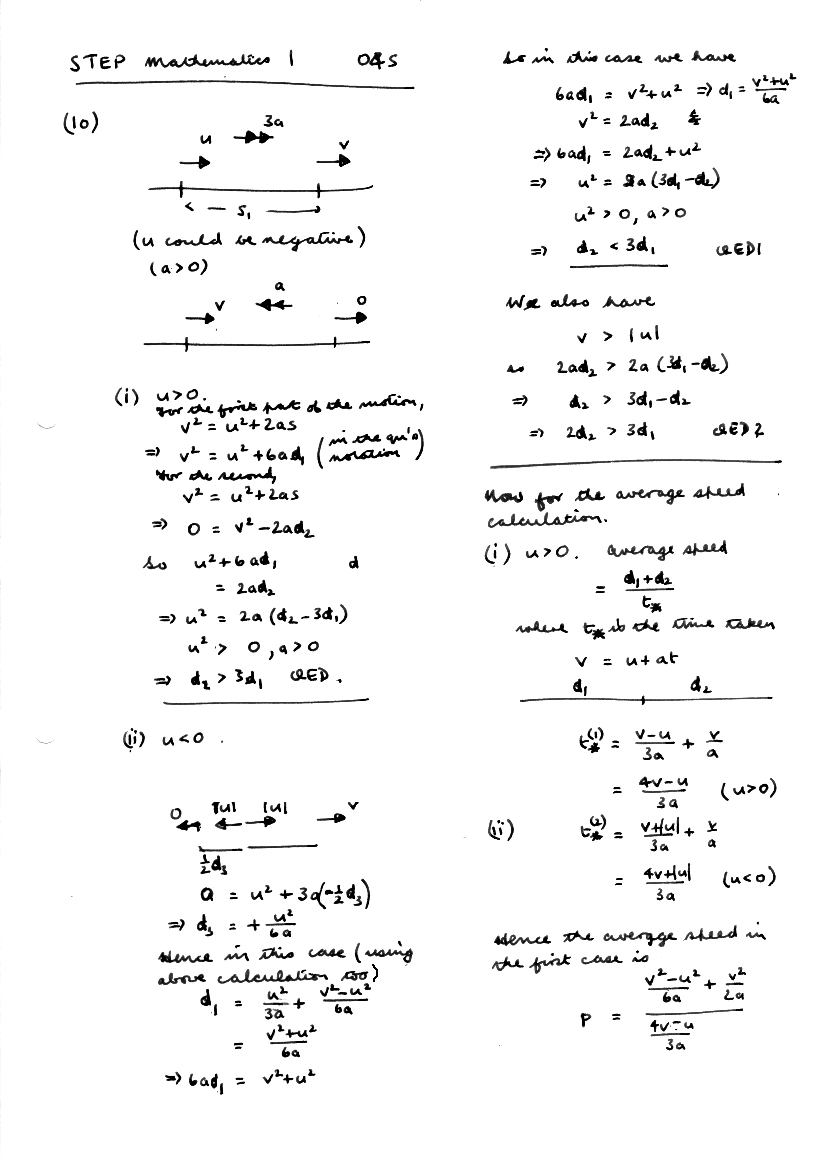 STEP Mathematics 1 04S
(10)
3a
u
v
< — S₁ —>
(u could be negative)
(a>0)
a
v
0
(i) u>0.
For the first part of the motion,
v² = u²+2as
⇒ v² = u²+6ad₁ (in the qu's notation)
For the second,
v² = u²+2as
⇒ 0 = v² – 2ad₂
So u²+6ad₁ d
= 2ad₂
⇒ u² = 2a(d₂–3d₁)
u² > 0, a>0
⇒ d₂ > 3d₁ QED.
(ii) u<0.
0 |u| |u| v
½d₃
0 = u² + 3a(–½d₃)
⇒ d₃ = + u²/6a
Hence in this case (using
above calculation too)
d₁ = u²/3a + (v²–u²)/6a
= (v²+u²)/6a
⇒ 6ad₁ = v²+u²
So in this case we have
6ad₁ = v²+u² ⇒ d₁ = (v²+u²)/6a
v² = 2ad₂
⇒ 6ad₁ = 2ad₂+u²
⇒ u² = 2a(3d₁–d₂)
u² > 0, a>0
⇒ d₂ < 3d₁ QED1
We also have
v > |u|
so 2ad₂ > 2a(3d₁–d₂)
⇒ d₂ > 3d₁–d₂
⇒ 2d₂ > 3d₁ QED2
Now for the average speed
calculation.
(i) u>0. average speed
= (d₁+d₂)/t*
where t* is the time taken
v = u+at
d₁ d₂
t*⁽¹⁾ = (v–u)/3a + v/a
= (4v–u)/3a (u>0)
(ii) t*⁽²⁾ = (v+|u|)/3a + v/a
= (4v+|u|)/3a (u<0)
Hence the average speed in
the first case is
P = ((v²–u²)/6a + v²/2a)/((4v–u)/3a)